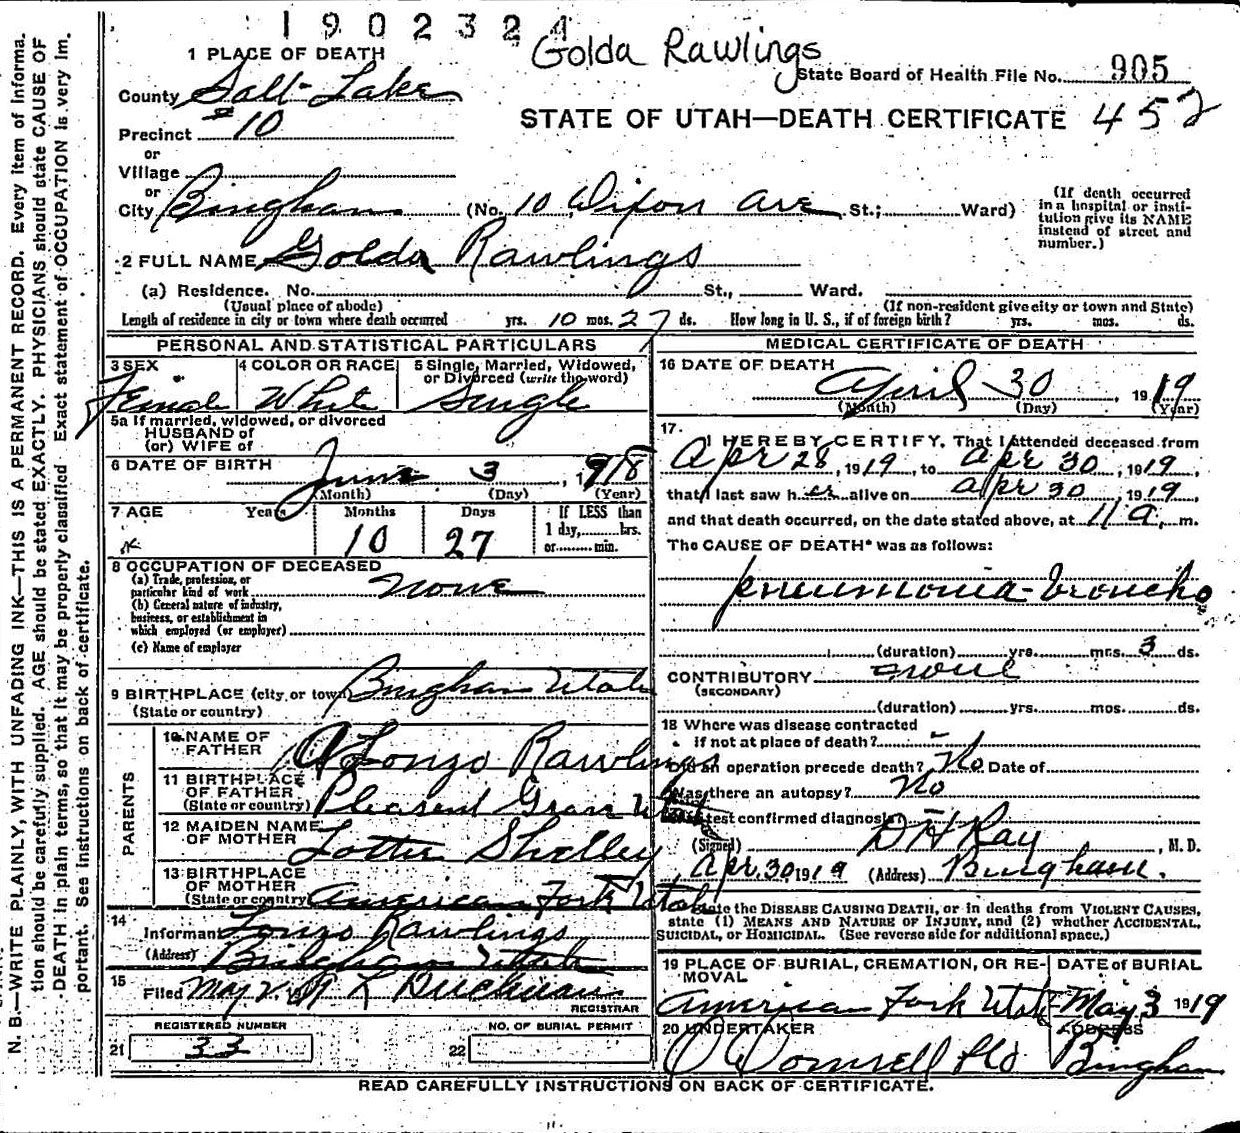 1902324
Golda Rawlings
1 PLACE OF DEATH
State Board of Health File No. 905
County Salt Lake
STATE OF UTAH—DEATH CERTIFICATE 452
Precinct #10
or
Village
or
City Bingham (No. 10 Dixon Ave St.; Ward)
(If death occurred in a hospital or institution give its NAME instead of street and number.)
2 FULL NAME Golda Rawlings
(a) Residence. No. St., Ward.
(Usual place of abode) (If non-resident give city or town and State)
Length of residence in city or town where death occurred yrs. 10 mos. 27 ds. How long in U. S., if of foreign birth? yrs. mos. ds.
PERSONAL AND STATISTICAL PARTICULARS
3 SEX 4 COLOR OR RACE 5 Single, Married, Widowed, or Divorced (write the word)
Female White Single
5a If married, widowed, or divorced
HUSBAND of
(or) WIFE of
6 DATE OF BIRTH June 3, 1918
(Month) (Day) (Year)
7 AGE Years Months Days If LESS than
1 day, hrs.
or min.
10 27
8 OCCUPATION OF DECEASED
(a) Trade, profession, or
particular kind of work None
(b) General nature of industry,
business, or establishment in
which employed (or employer)
(c) Name of employer
9 BIRTHPLACE (city or town) Bingham Utah
(State or country)
PARENTS
10 NAME OF
FATHER Alonzo Rawlings
11 BIRTHPLACE
OF FATHER
(State or country) Pleasent Grove Utah
12 MAIDEN NAME
OF MOTHER Lottie Shelley
13 BIRTHPLACE
OF MOTHER
(State or country) American Fork Utah
14
Informant Lonzo Rawlings
(Address) Bingham Utah
15
Filed May 2. R L Buchanan
REGISTRAR
REGISTERED NUMBER NO. OF BURIAL PERMIT
21 33 22
MEDICAL CERTIFICATE OF DEATH
16 DATE OF DEATH
April 30, 1919
(Month) (Day) (Year)
17.
I HEREBY CERTIFY, That I attended deceased from
Apr 28, 1919, to Apr 30, 1919,
that I last saw her alive on Apr 30 1919,
and that death occurred, on the date stated above, at 11 a. m.
The CAUSE OF DEATH* was as follows:
pneumonia-broncho
(duration) yrs. mos. 3 ds.
CONTRIBUTORY none
(SECONDARY)
(duration) yrs. mos. ds.
18 Where was disease contracted
if not at place of death?
Did an operation precede death? No Date of
Was there an autopsy? No
test confirmed diagnosis
(Signed) D H Ray, M. D.
Apr. 30, 1919 (Address) Bingham.
State the DISEASE CAUSING DEATH, or in deaths from VIOLENT CAUSES,
state (1) MEANS AND NATURE OF INJURY, and (2) whether ACCIDENTAL,
SUICIDAL, or HOMICIDAL. (See reverse side for additional space.)
19 PLACE OF BURIAL, CREMATION, OR REMOVAL DATE OF BURIAL
American Fork Utah May 3 1919
20 UNDERTAKER ADDRESS
O'Donnell &Co Bingham
READ CAREFULLY INSTRUCTIONS ON BACK OF CERTIFICATE.
N. B.—WRITE PLAINLY, WITH UNFADING INK—THIS IS A PERMANENT RECORD. Every item of informa-
tion should be carefully supplied. AGE should be stated EXACTLY. PHYSICIANS should state CAUSE OF
DEATH in plain terms, so that it may be properly classified. Exact statement of OCCUPATION is very im-
portant. See instructions on back of certificate.